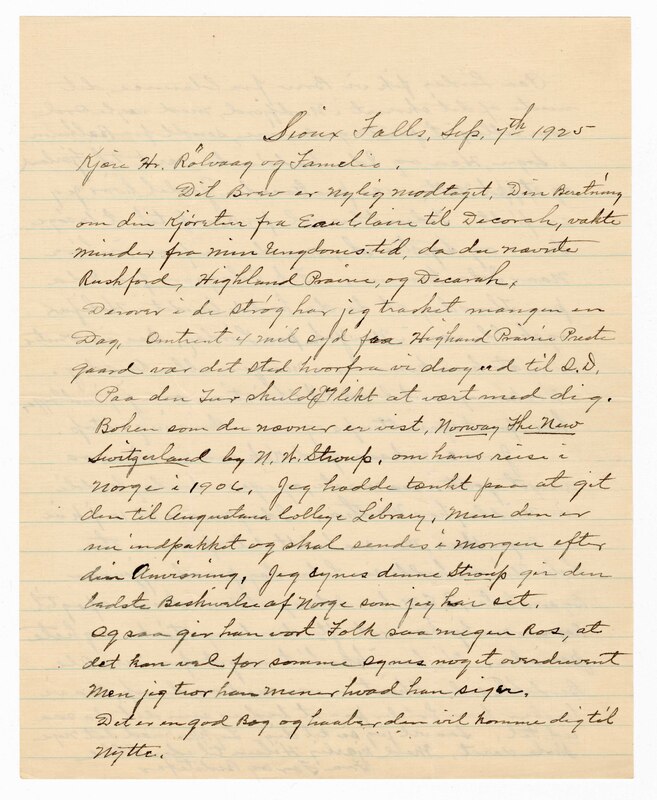 Sioux Falls, Sep. 7th 1925
Kjære Hr. Rölvaag og Famelie.
Dit Brev er nylig modtaget. Din Beretning
om din Kjøretur fra Eau Claire til Decorah, vakte
minder fra min Ungdomstid, da du nævnte
Rushford, Highland Prairie, og Decorah.
Derover i de strøg har jeg trasket mangen en
Dag. Omtrent 4 mil syd fra Highland Prairie Preste
gaard var det sted hvorfra vi drog ud til S.D.
Paa den Tur skulde jeg likt at vært med dig.
Boken som du nævner er vist, Norway The New
Switzerland by N. W. Stroup, om hans reise i
Norge i 1906. Jeg hadde tænkt paa at git
den til Augustana College Library, Men den er
nu indpakket og skal sendes i Morgen efter
din Anvisning. Jeg synes denne Stroup gir den
bedste Beskrivelse af Norge som jeg har set.
Ogsaa gir han vort Folk saa megen Ros, at
det kan vel for somme synes noget overdrevent
Men jeg tror han mener hvad han siger.
Det er en god Bog og haaber den vil komme dig til
Nytte.